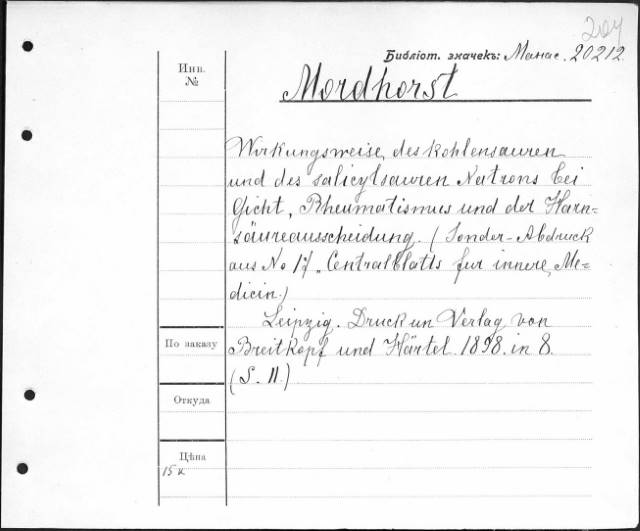 204
Библіот. значекъ: Манас. 20212.
Инв.
№
Mordhorst
Wirkungsweise des kohlensauren
und des salicylsauren Natrons bei
Gicht, Rheumatismus und der Harn=
säureausscheidung. (Sonder-Abdruck
aus No 17 „Centralblatts fur innere Me=
dicin.)
Leipzig. Druck un Verlag von
Breitkopf und Härtel. 1898. in 8.
(S. 11.)
По заказу
Откуда
Цѣна
15 к